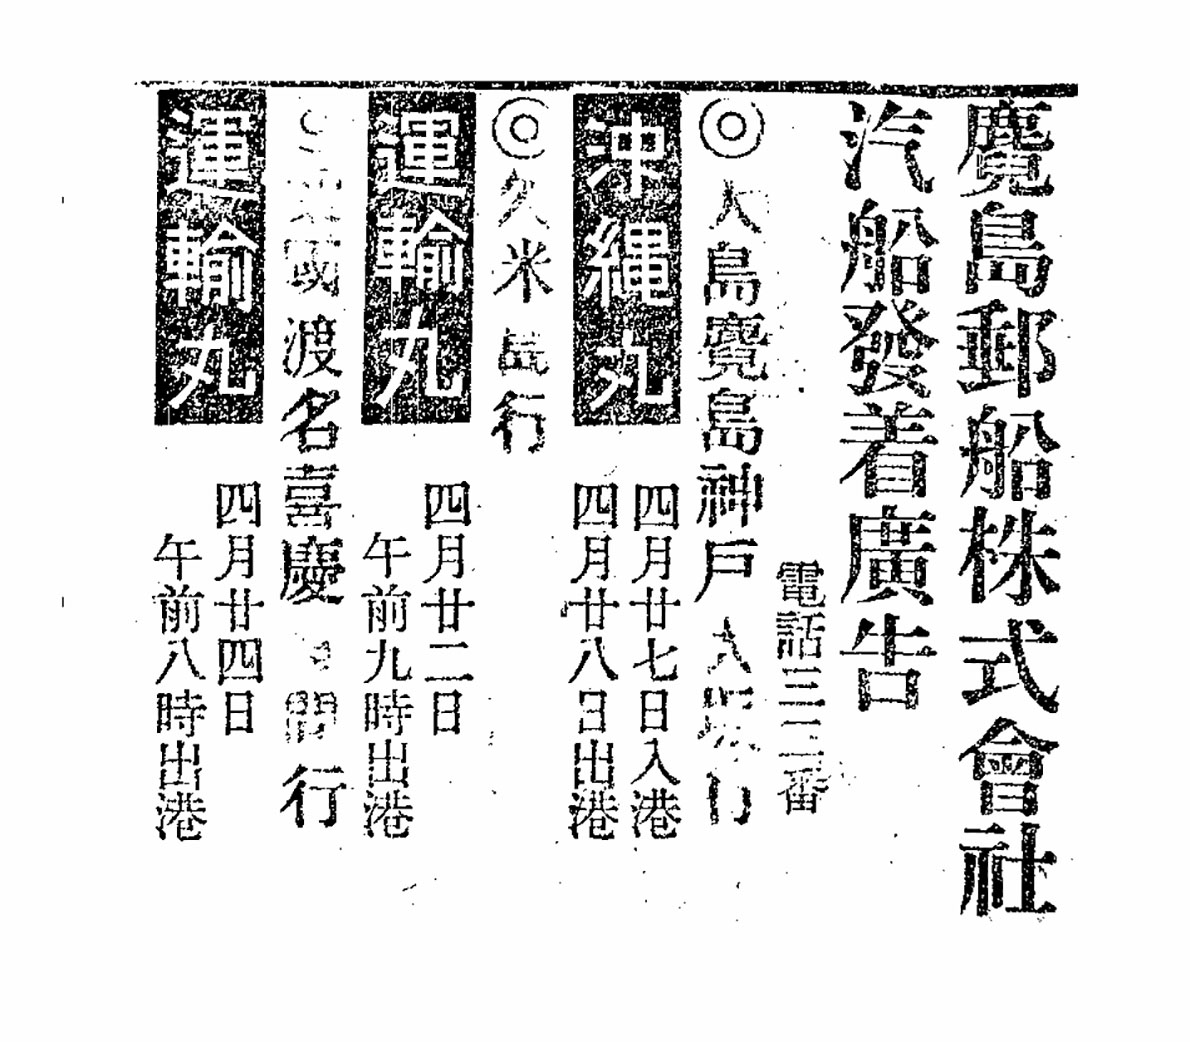 麑島郵船株式會社
汽船發着廣告
電話三二番
◎大島麑島神戸大坂行
沖縄丸
四月廿七日入港
四月廿八日出港
◎久米島行
運輸丸
四月廿二日
午前九時出港
◎粟國渡名喜慶良間行
運輸丸
四月廿四日
午前八時出港